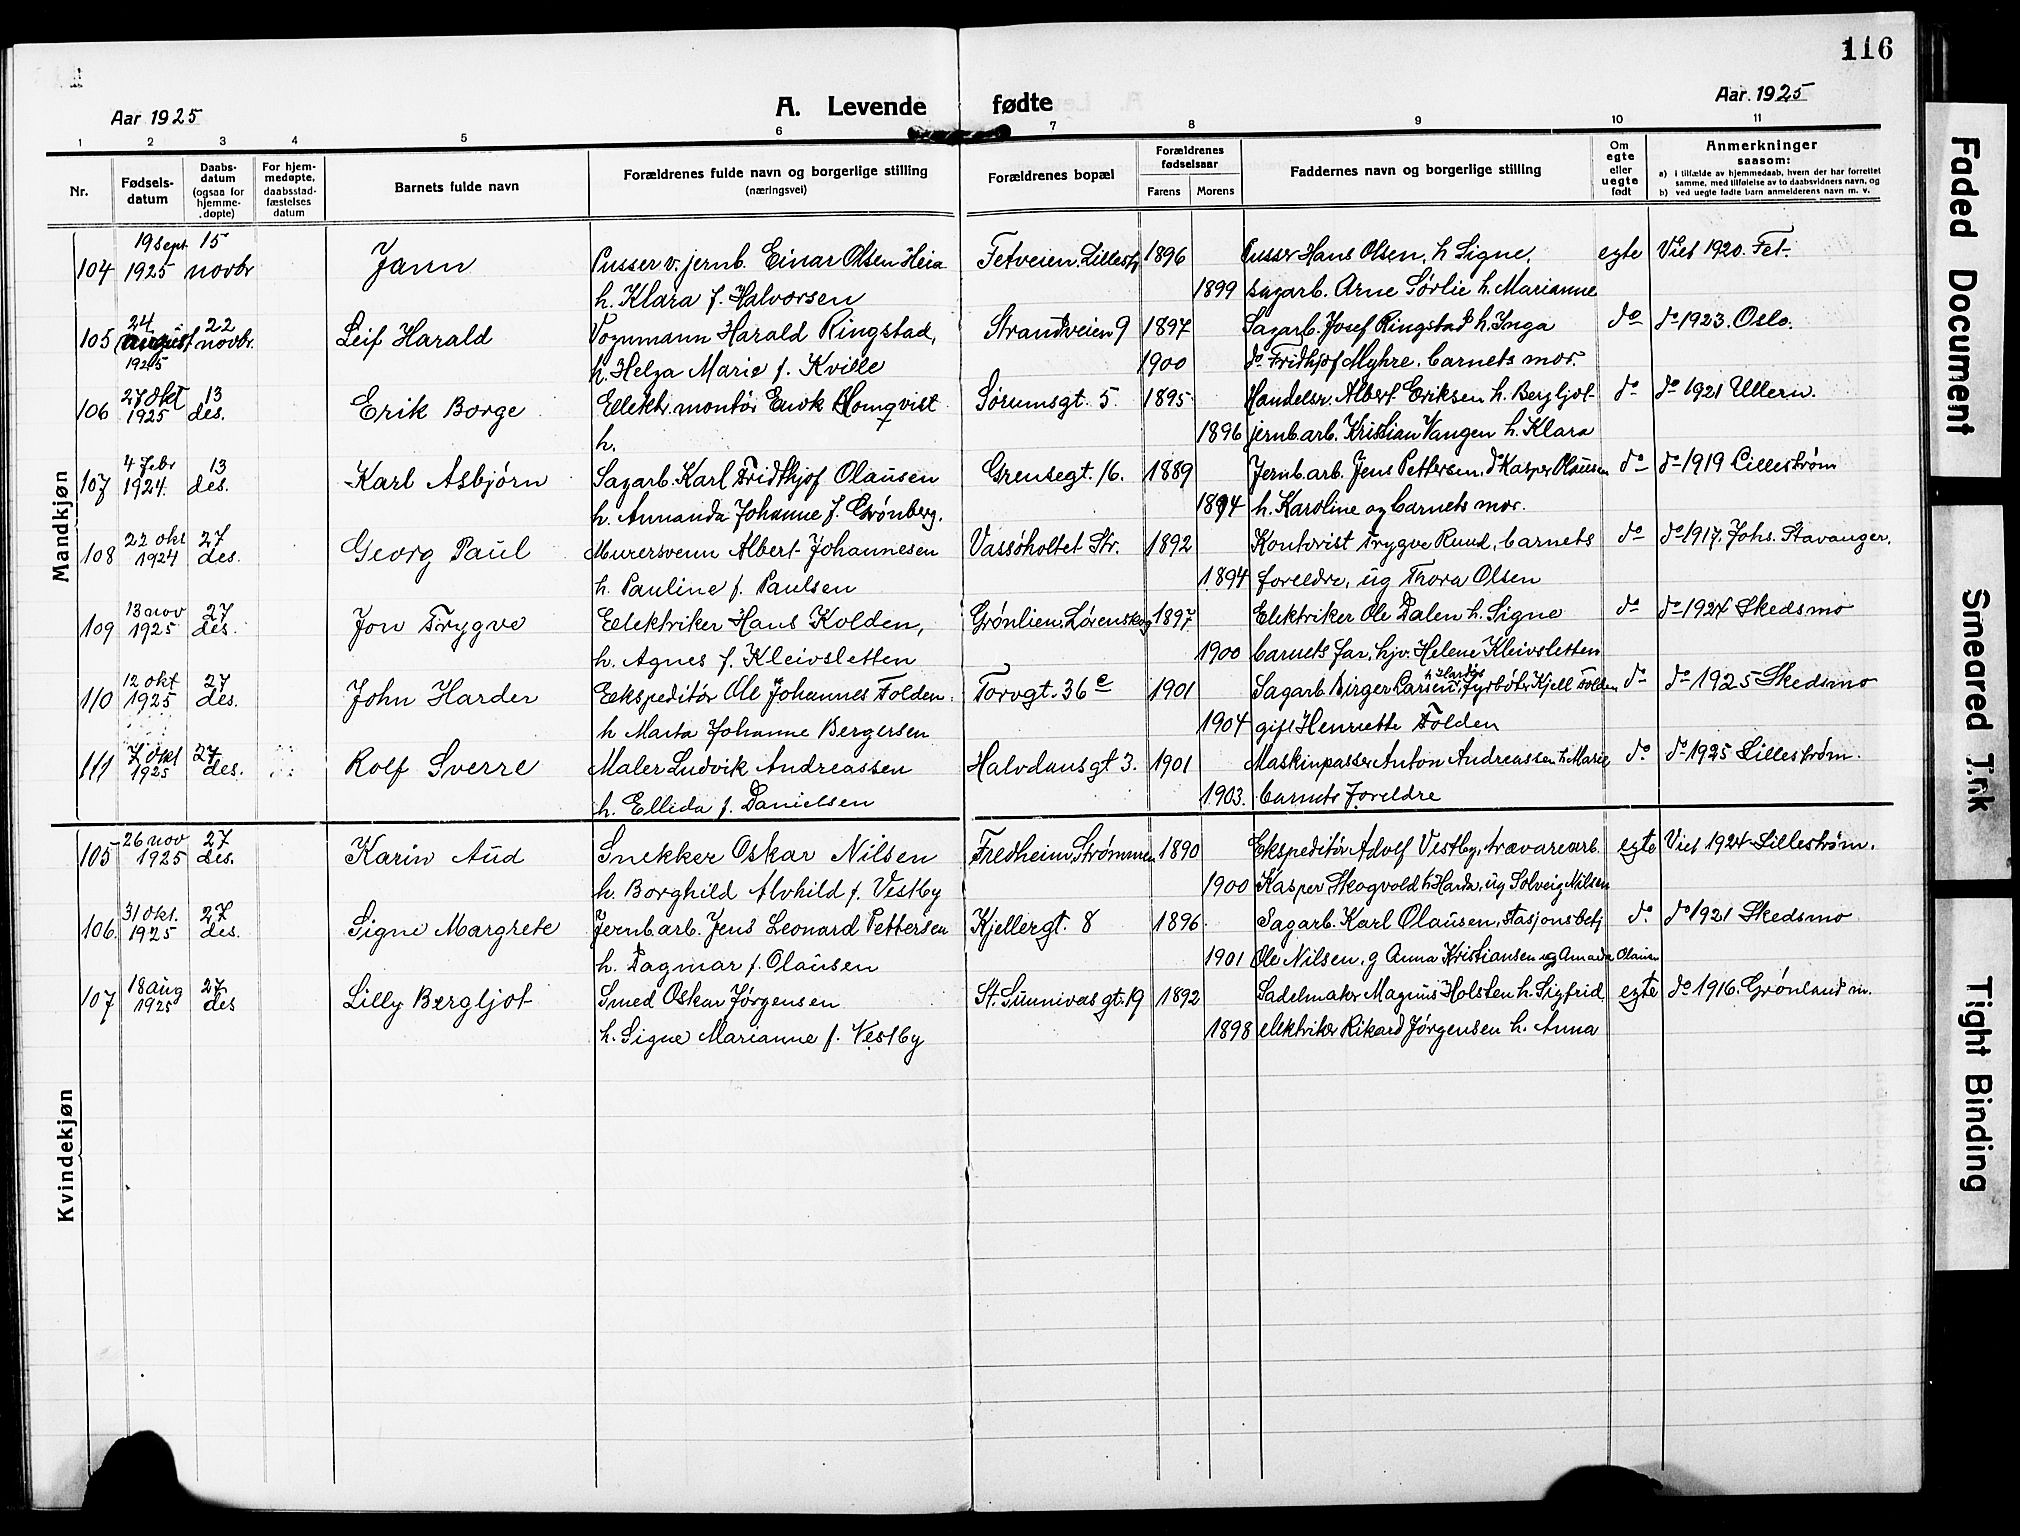 116
Aar 1925
A. Levende fødte
Aar 1925
1 2 3 4 5 6 7 8 9 10 11
Nr.
Fødsels-
datum
Daabs-
datum
(ogsaa for
hjemme-
døpte)
For hjem-
medøpte,
daabsstad-
fæstelses
datum
Barnets fulde navn
Forældrenes fulde navn og borgerlige stilling
(næringsvei)
Forældrenes bopæl
Forældrenes
fødselsaar
Farens Morens
Faddernes navn og borgerlige stilling
Om
egte
eller
uegte
født
Anmerkninger
saasom:
a) i tilfælde av hjemmedaab, hvem der har forrettet
samme, med tilføielse av to daabsvidners navn, og
b) ved uegte fødte barn anmelderens navn m. v.
Mandkjøn
19 sept. 15
104 1925 novbr Jann Pusser v. jernb. Einar Olsen Heia Fetveien, Lillestr. 1896 Pusser Hans Olsen, h. Signe, egte Viet 1920. Fet.
h. Klara f. Halvorsen 1899 sagarb. Arne Sørlie h. Marianne
24 22
105 august novbr. Leif Harald Vognmann Harald Ringstad, Strandveien 9 1897 Sagarb. Josef Ringstad h. Inga do do 1923. Oslo.
1925 h. Helga Marie f. Kville 1900 do Fridthjof Myhre. barnets mor.
27 Okt 13
106 1925 des. Erik Borge Elektr. montør Homqvist Sørumsgt. 5. 1895 Handelsr. Albert Eriksen h. Bergljot do do 1921 Ullern.
h. 1896 jernb.arb. Kristian Vangen h. Klara
4 Febr 13
107 1924. des. Karl Asbjørn Sagarb. Karl Fridthjof Olausen Grensegt. 16. 1889 Jernb.arb. Jens Pettersen, do Kasper Olausen do do 1919 Lillestrøm
h. Annanda Johanne f. Grønberg. 1894 h. Karoline og barnets mor.
22 okt 27
108 1924 des. Georg Paul Murersvenn Albert Johannesen Vassøholtet Str. 1892 Kontorist Trygve Ruud, barnets do do 1917. Johs. Stavanger.
h. Pauline f. Paulsen 1894 foreldre, ug Thora Olsen
13 nov 27
109 1925 des. Jon Trygve Elektriker Hans Kolden, Grønlien, Lørenskog 1897 Elektriker Ole Dalen h. Signe do do 1924 Skedsmo
h. Agnes f. Kleivsletten 1900 barnets far, hjv. Helene Kleivsletten
12 okt 27
110 1925 des. John Harder Ekspeditør Ole Johannes Folden. Torvgt. 36 c 1901 Sagarb. Birger Larsen, Fyrbøter Kjell Folden do do 1925 Skedsmo
h Marta Johanne Bergersen 1904 gift Henriette Folden
7 Okt 27
111 1925 des. Rolf Sverre Maler Ludvik Andreassen Halvdansgt 3. 1901 Maskinpasser Anton Andreassen h. Marie do do 1925 Lillestrøm.
h. Ellida f. Danielsen 1903. barnets Foreldre
Kvindekjøn
26 nov 27
105 1925 des. Karin Aud Snekker Oskar Nilsen Fredheim, Strømmen 1890 Ekspeditør Adolf Vestby, trævarearb. egte Viet 1924 Lillestrøm.
h. Borghild Alvhild f. Vestby 1900 Kasper Skogvold h. Harda, ug Solveig Nilsen
31 okt. 27
106. 1925 des. Signe Margrete Jernb.arb. Jens Leonard Pettersen Kjellergt. 8 1896. Sagarb. Karl Olausen, stasjonsbetj do do 1921 Skedsmo
h. Dagmar f. Olausen 1901 Ole Nilsen, g Anna Kristiansen og Amanda Olausen
18 aug 27
107 1925 des Lilly Bergljot Smed Oskar Jørgensen St. Sunnivas gt. 19 1892 Sadelmaker Magnus Holsten h. Sigfrid egte do 1916. Grønland m.
h. Signe Marianne f. Vestby 1898 elektriker Rikard Jørgensen h. Anna
Faded Document
Smeared Ink
Tight Binding